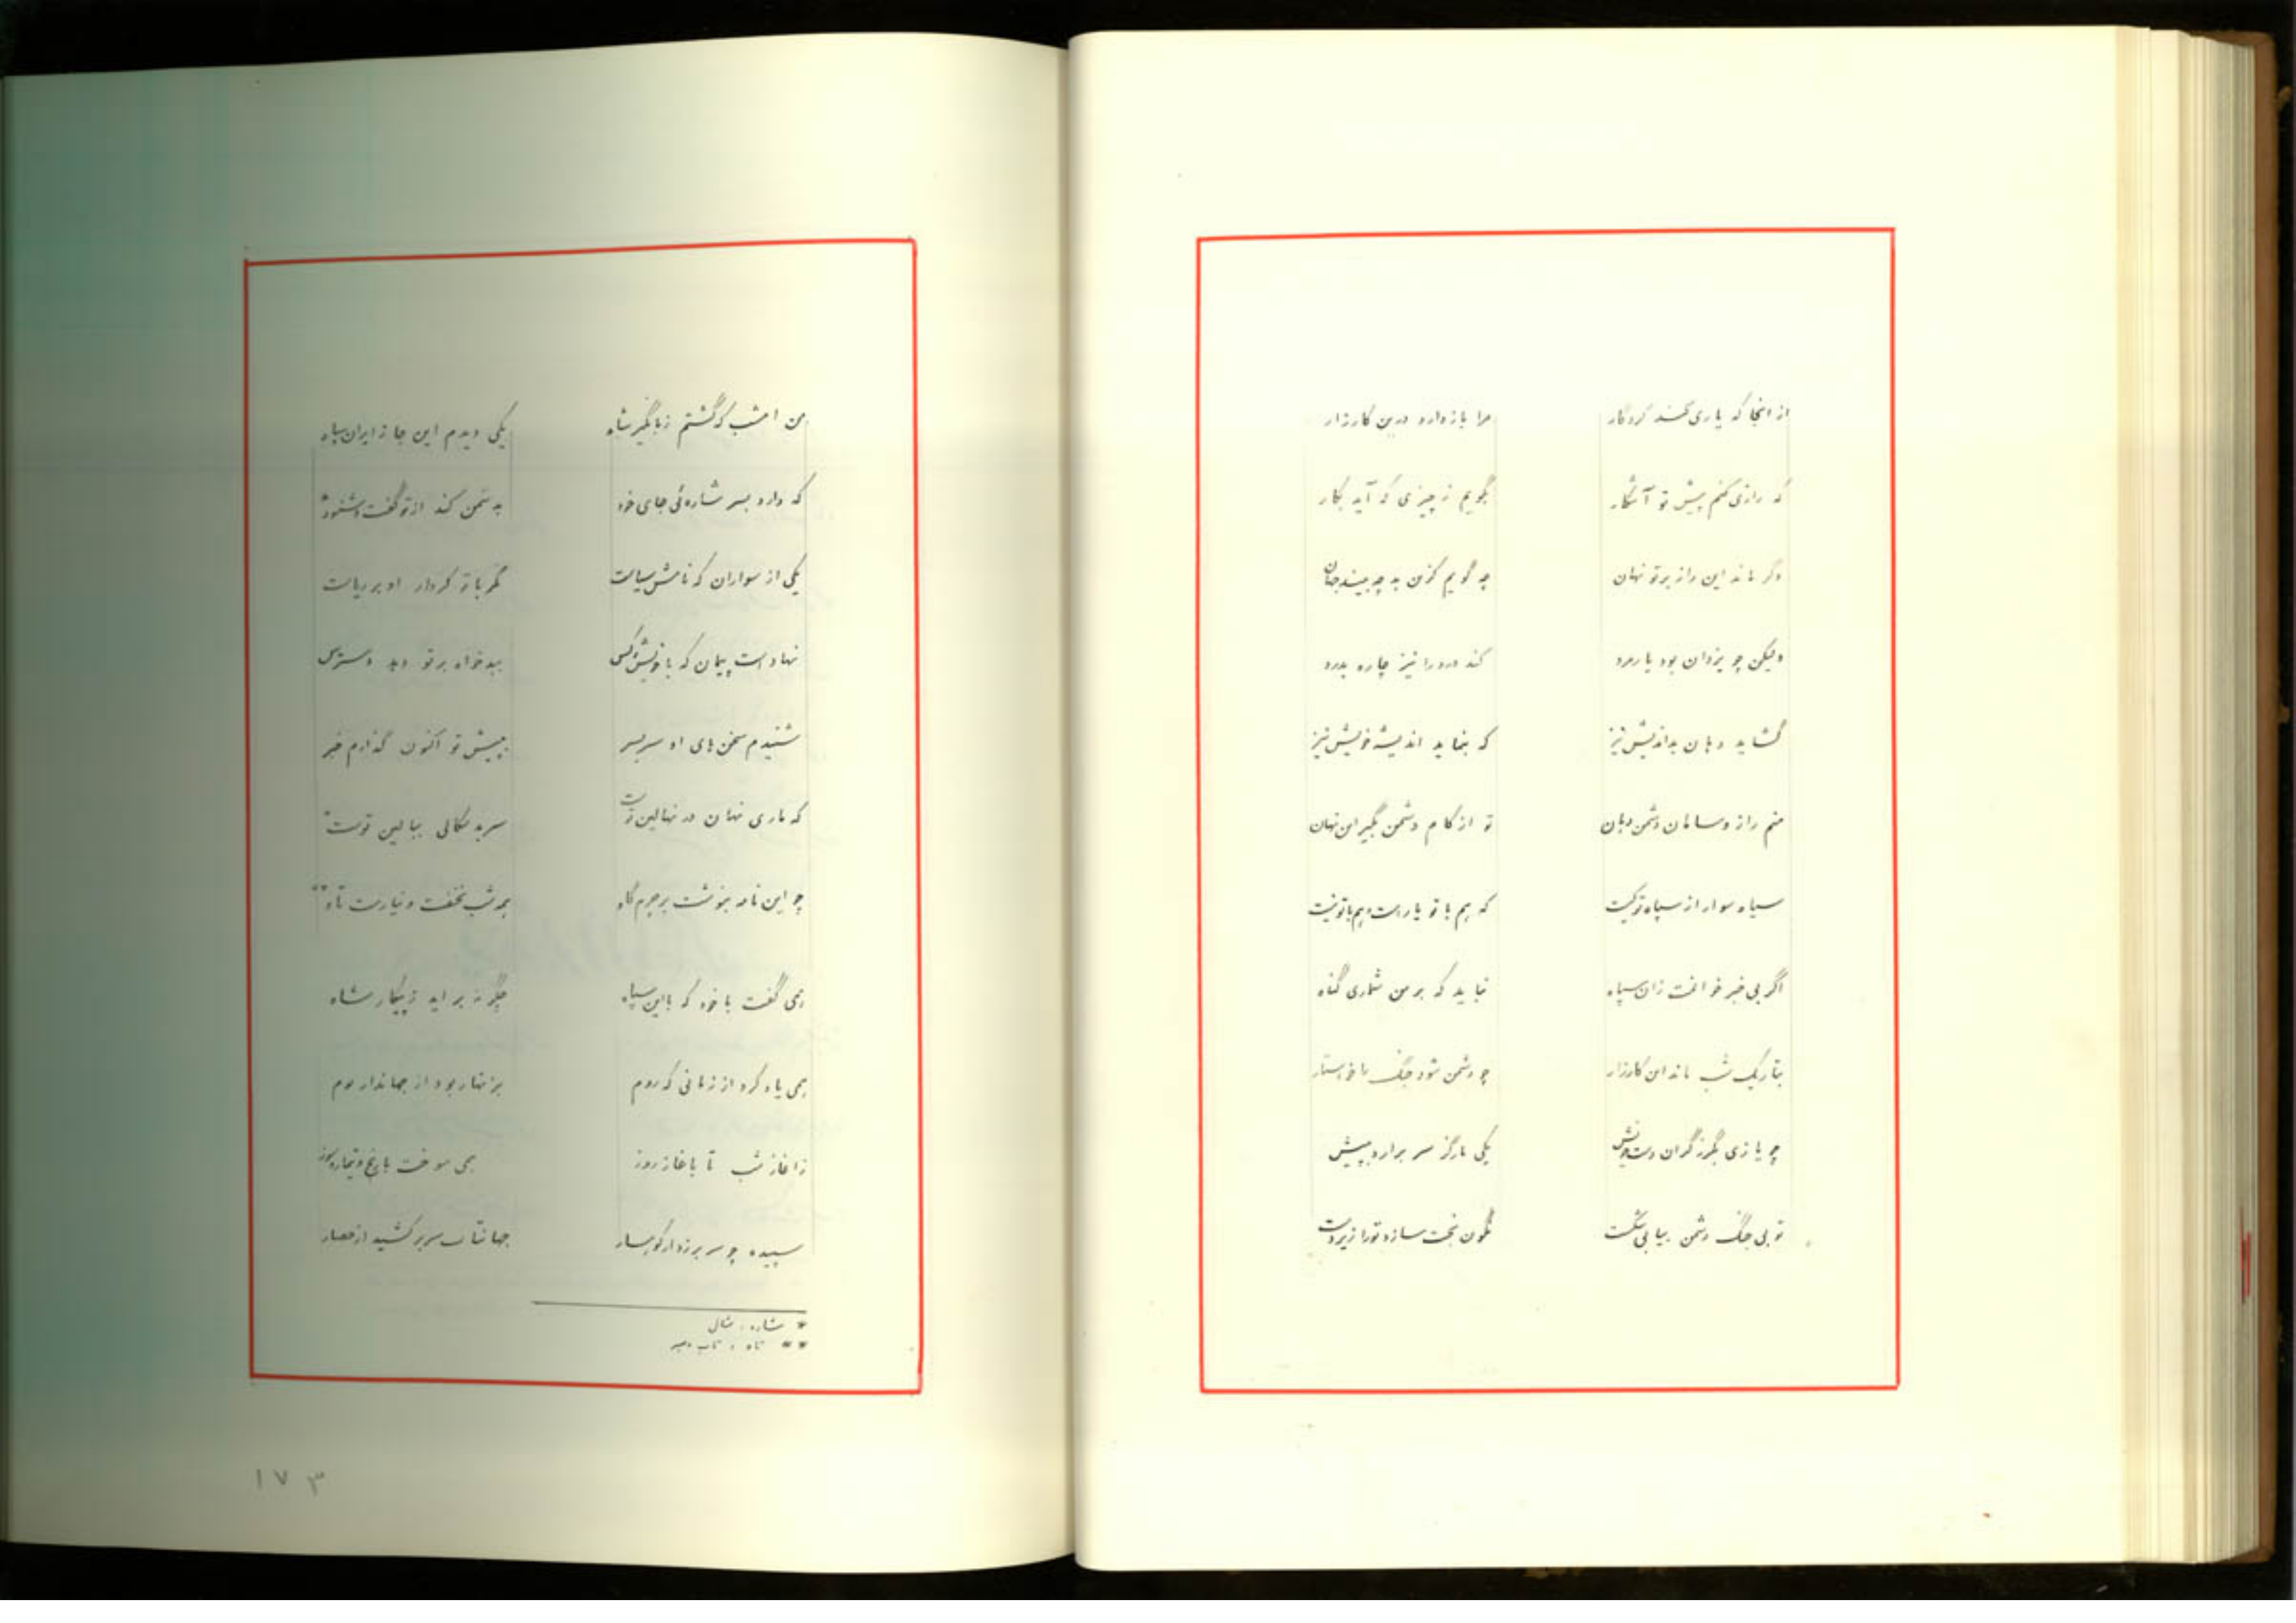 از انجا که یاری کند کردگار مرا باز دارد درین کارزار
که رازی کنم پیش تو آشکار بگویم ز چیزی که آید بکار
وگر ماند این راز بر تو نهان چه گویم کزن به چه بیند جهان
ولیکن چو یزدان بود یار مرد کند درد را نیز چاره بدرد
گشاید دهان بداندیش نیز که بنماید اندیشه خویش نیز
منم راز و سامان دشمن دهان تو از کام دشمن بگیر این نهان
سیاه سوار از سپاه تو کیست که هم با تو یار است و هم با تو نیست
اگر بی خبر خوانمت زان سپاه نباید که بر من شماری گناه
بتاریک شب ماند این کارزار چو دشمن شود جنگ را خواستار
چو یازی بگرز گران دست خویش یکی مار گرز سر برارد بپیش
تو بی جنگ دشمن بیابی شکست نگون بخت سازد تو را زیردست
من امشب که گشتم زبانگیر شاه یکی دیدم این جا ز ایران سپاه
که دارد بسر شاره‌ئی جای خود * به دشمن کند از تو گفت و شنود
یکی از سواران که نامش سیاست مگر باز کردار او بر ریاست
نهاد است پیمان که با خویش کس ببدخواه بر تو دهد دسترس
شنیدم سخن های او سربسر بپیش تو اکنون گذارم خبر
که ماری نهان در نهالین تست سر بدسگالی ببالین توست
چو این نامه بنوشت بر جرم گاه همه شب نخفت و نیارست تاه **
همی گفت با خود که با این سپاه چگونه بر اید ز پیکار شاه
همی یاد کرد از زمانی که روم بزنهار بود از جهاندار بوم
زاغاز شب تا باغاز روز همی سوخت با رنج و تیمار و سوز
سپیده چو سر بر زد از کوهسار جهانتاب سر بر کشید از حصار
* شاره : شال
** تاه : تاب و صبر
۱۷۳